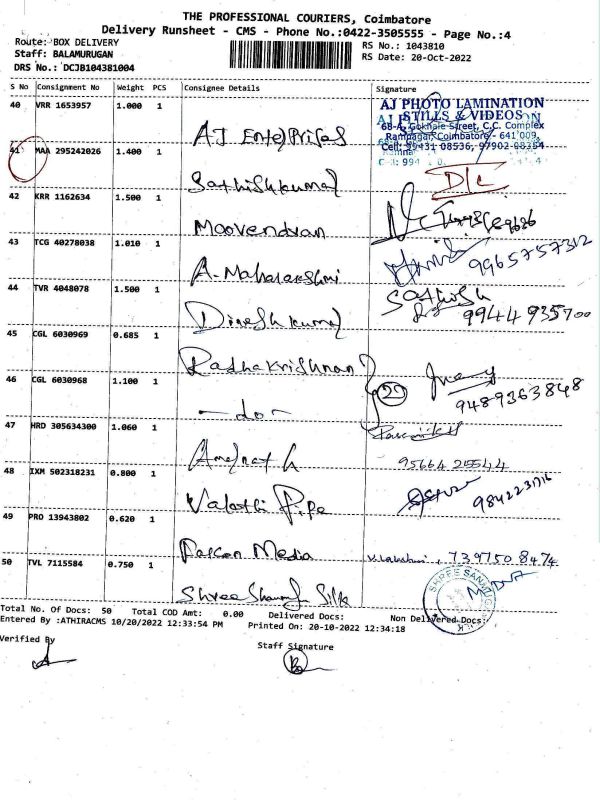 THE PROFESSIONAL COURIERS, Coimbatore
Delivery Runsheet - CMS - Phone No.:0422-3505555 - Page No.:4
Route: BOX DELIVERY
Staff: BALAMURUGAN
DRS No.: DCJB104381004
RS No.: 1043810
RS Date: 20-Oct-2022
S No Consignment No Weight PCS Consignee Details Signature
40 VRR 1653957 1.000 1
AJ Enterprises
AJ PHOTO LAMINATION
STILLS & VIDEOS
68-A, Gokhale Street, C.C. Complex
Ramnagar, Coimbatore - 641 009.
Cell: 99431 08536, 97902 08354
41 MAA 295242026 1.400 1
Sathishkumar
D/C
42 KRR 1162634 1.500 1
Moovendran
43 TCG 40278038 1.010 1
A. Maharakshmi
9965757312
44 TVR 4048078 1.500 1
Dineshkumar
Sathish
9944935700
45 CGL 6030969 0.685 1
Radhakrishnan
46 CGL 6030968 1.100 1
- do -
22
9489363848
47 HRD 305634300 1.060 1
Amarnath
95664 25544
48 IXM 502318231 0.800 1
Valathi Pipe
49 PRO 13943802 0.620 1
Falcon Media
7397508474
50 TVL 7115584 0.750 1
Shree Silk
SHREE
Total No. Of Docs: 50 Total COD Amt: 0.00 Delivered Docs: Non Delivered Docs:
Entered By :ATHIRACMS 10/20/2022 12:33:54 PM Printed On: 20-10-2022 12:34:18
Verified By
Staff Signature